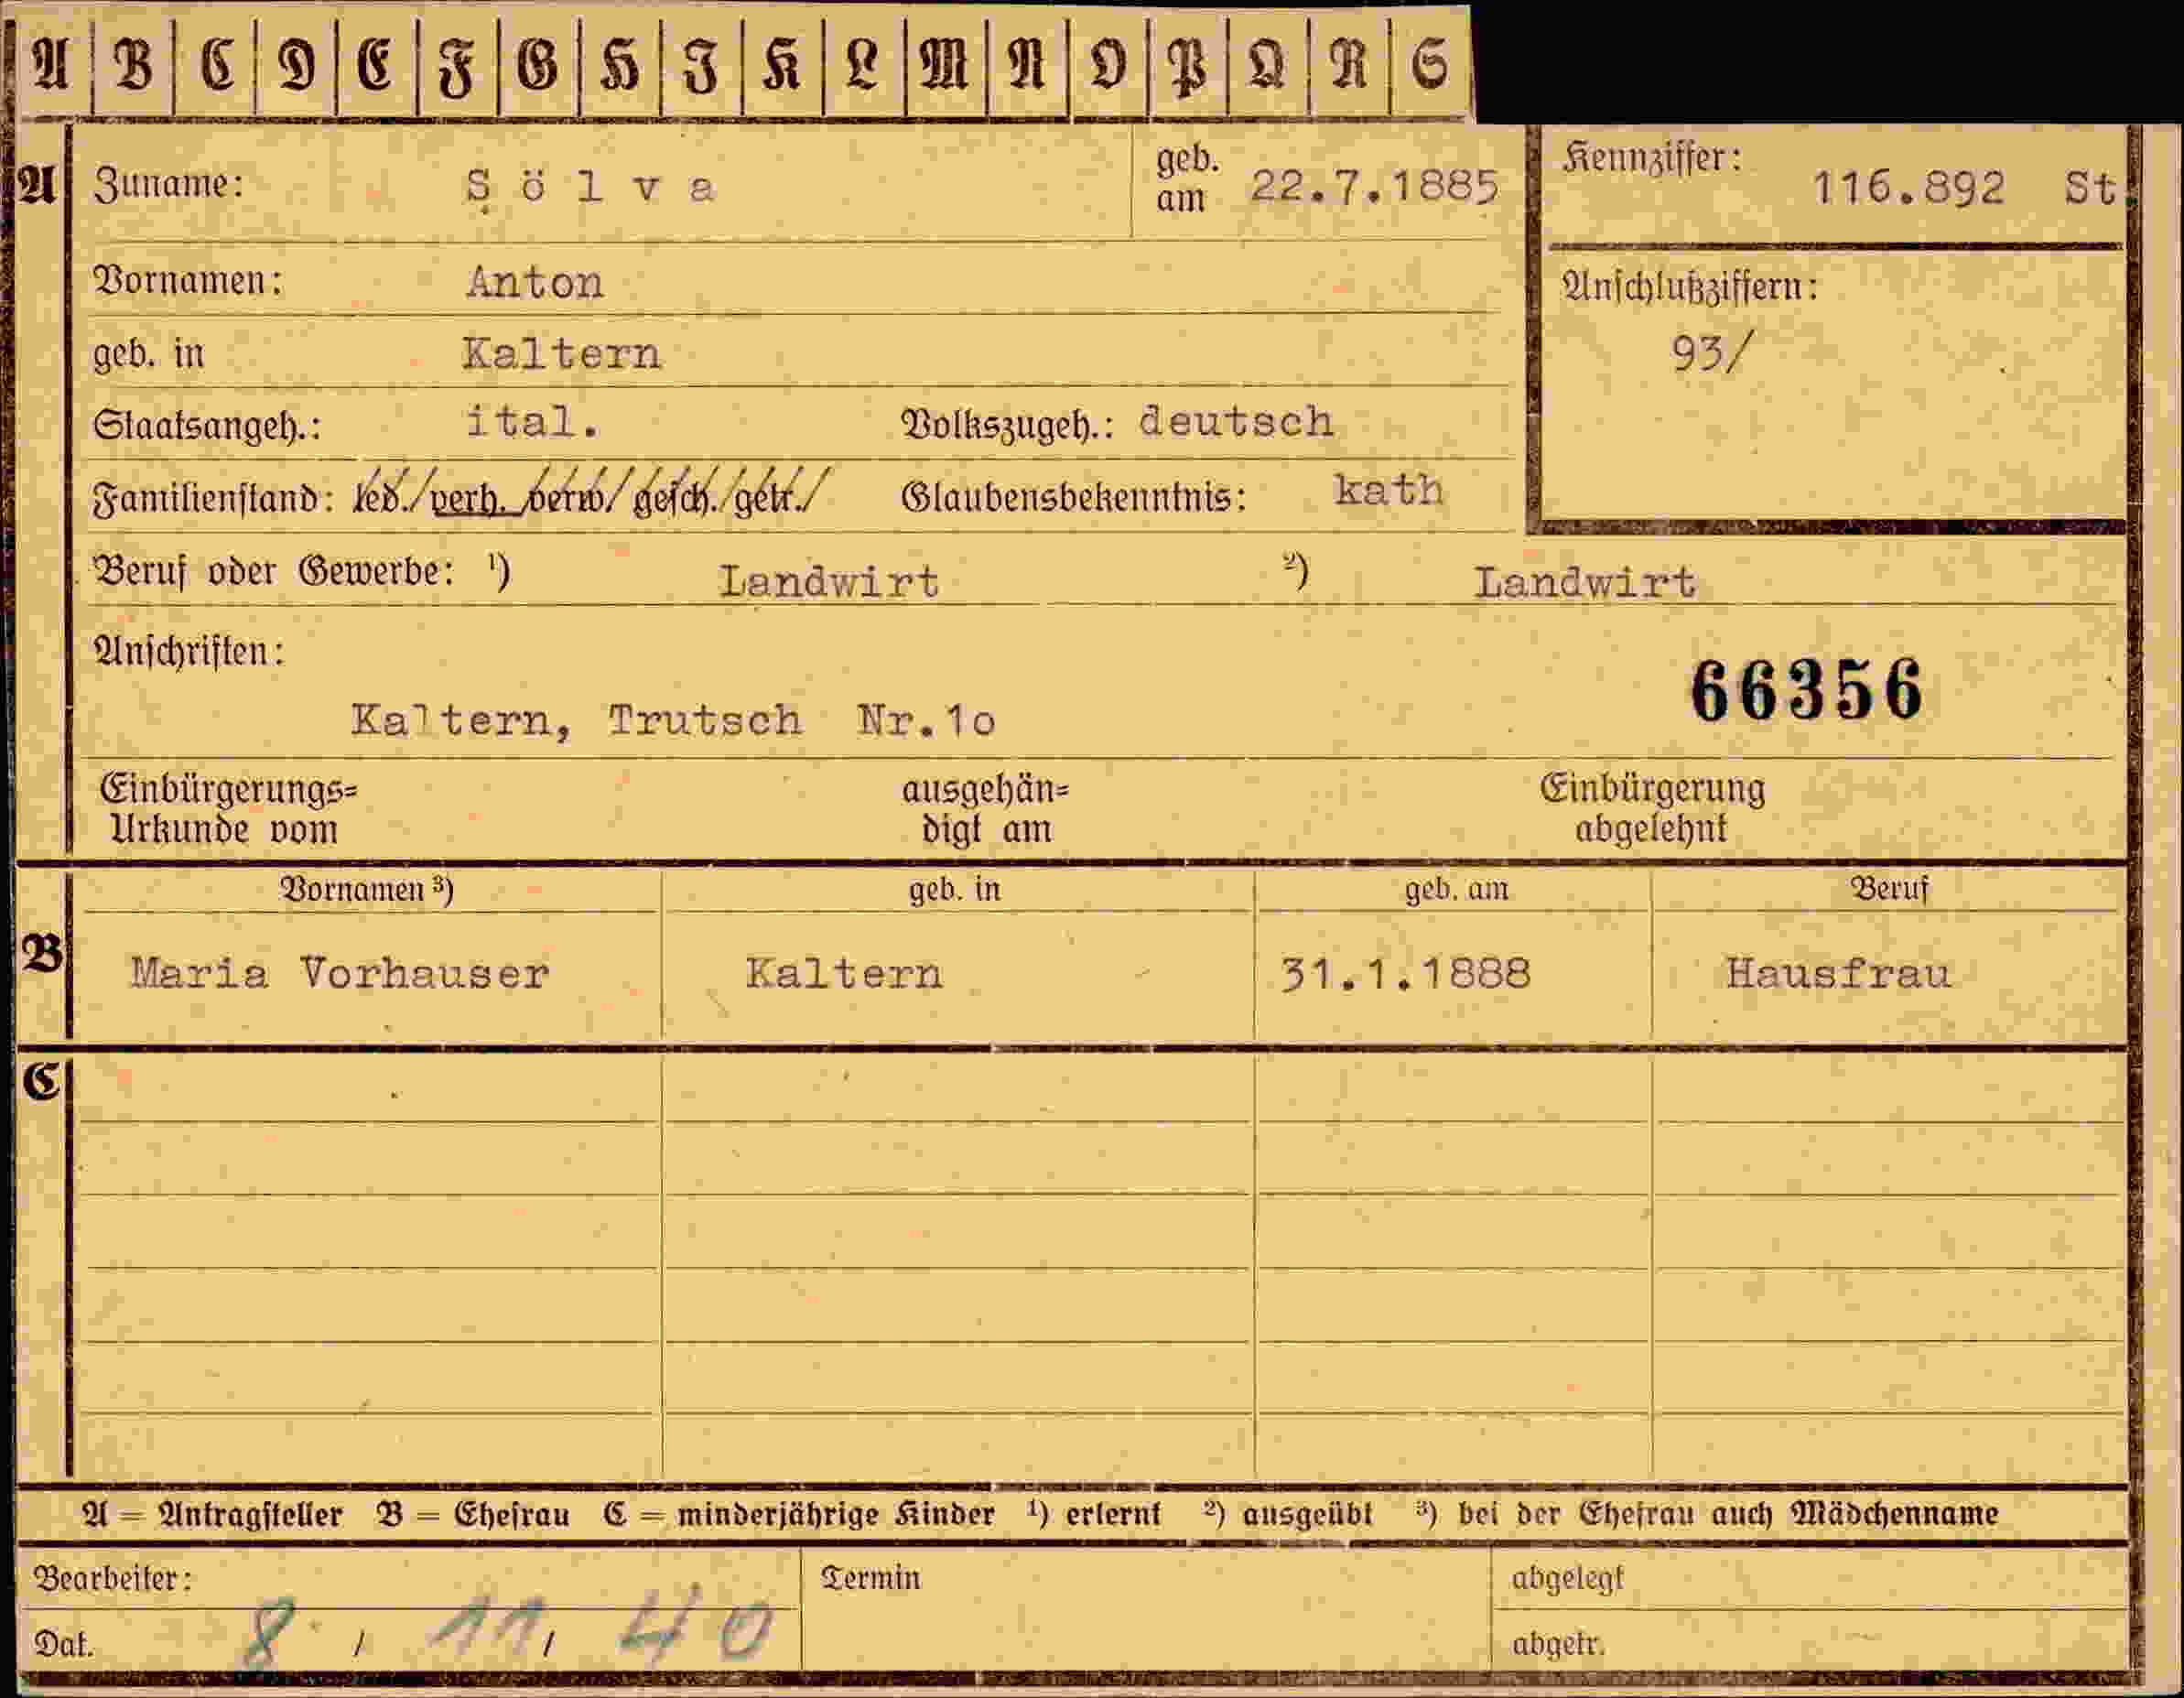 A B C D E F G H I K L M N O P Q R S
A Zuname: Sölva geb. am 22.7.1885 Kennziffer: 116.892 St
Vornamen: Anton Anschlußziffern:
geb. in Kaltern 93/
Staatsangeh.: ital. Volkszugeh.: deutsch
Familienstand: led./verh./verw/gesch./getr./ Glaubensbekenntnis: kath
Beruf oder Gewerbe: ¹) Landwirt ²) Landwirt
Anschriften:
66356
Kaltern, Trutsch Nr.1o
Einbürgerungs= ausgehän= Einbürgerung
Urkunde vom digt am abgelehnt
Vornamen ³) geb. in geb. am Beruf
B Maria Vorhauser Kaltern 31.1.1888 Hausfrau
C
A = Antragsteller B = Ehefrau C = minderjährige Kinder ¹) erlernt ²) ausgeübt ³) bei der Ehefrau auch Mädchenname
Bearbeiter: Termin abgelegt
Dat. 8 / 11 / 40 abgetr.